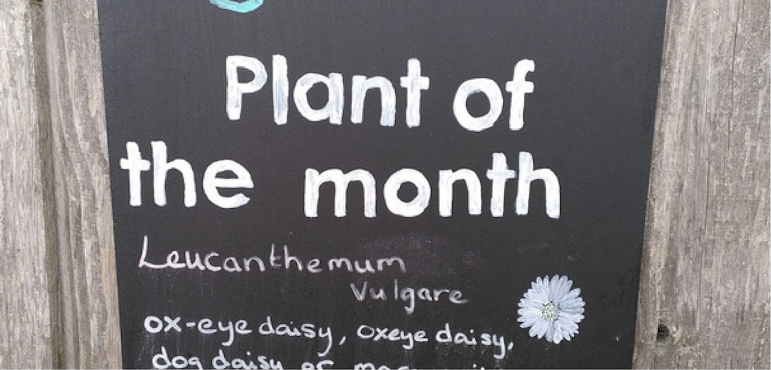 Plant of
the month
Leucanthemum
Vulgare
ox-eye daisy, oxeye daisy,
dog daisy or